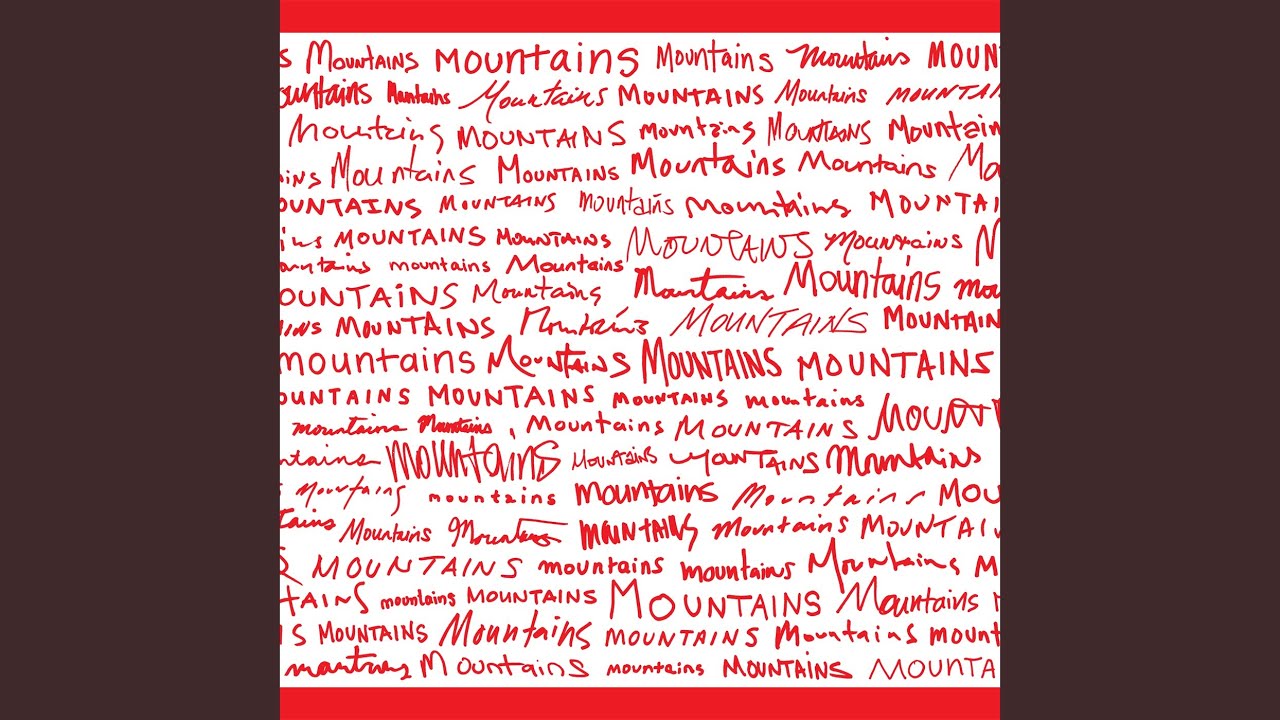 s Mountains mountains Mountains Mountains MOUN
ountains Mountains Mountains MOUNTAINS Mountains MOUNTAI
Mountains MOUNTAINS mountains Mountains Mountain
ins Mountains Mountains Mountains Mountains Mo
OUNTAINS MOUNTAINS Mountains mountains MOUNTAI
ins MOUNTAINS MOUNTAINS MOUNTAINS Mountains M
ountains mountains Mountains
OUNTAiNS Mountains Mountains Mountains mou
ins MOUNTAINS Mountains MOUNTAINS MOUNTAIN
mountains Mountains MOUNTAINS MOUNTAINS
OUNTAINS MOUNTAINS MOUNTAINS mountains
mountains Mountains , Mountains MOUNTAINS MOUNT
ntains mountains MOUNTAINS MOUNTAINS Mountains
s Mountains mountains mountains Mountains MOU
tains Mountains Mountains MOUNTAINS mountains MOUNTAI
MOUNTAINS mountains mountains Mountains M
TAINS mountains MOUNTAINS MOUNTAINS Mountains
S MOUNTAINS Mountains MOUNTAINS Mountains mount
Mountains mountains MOUNTAINS MOUNTA